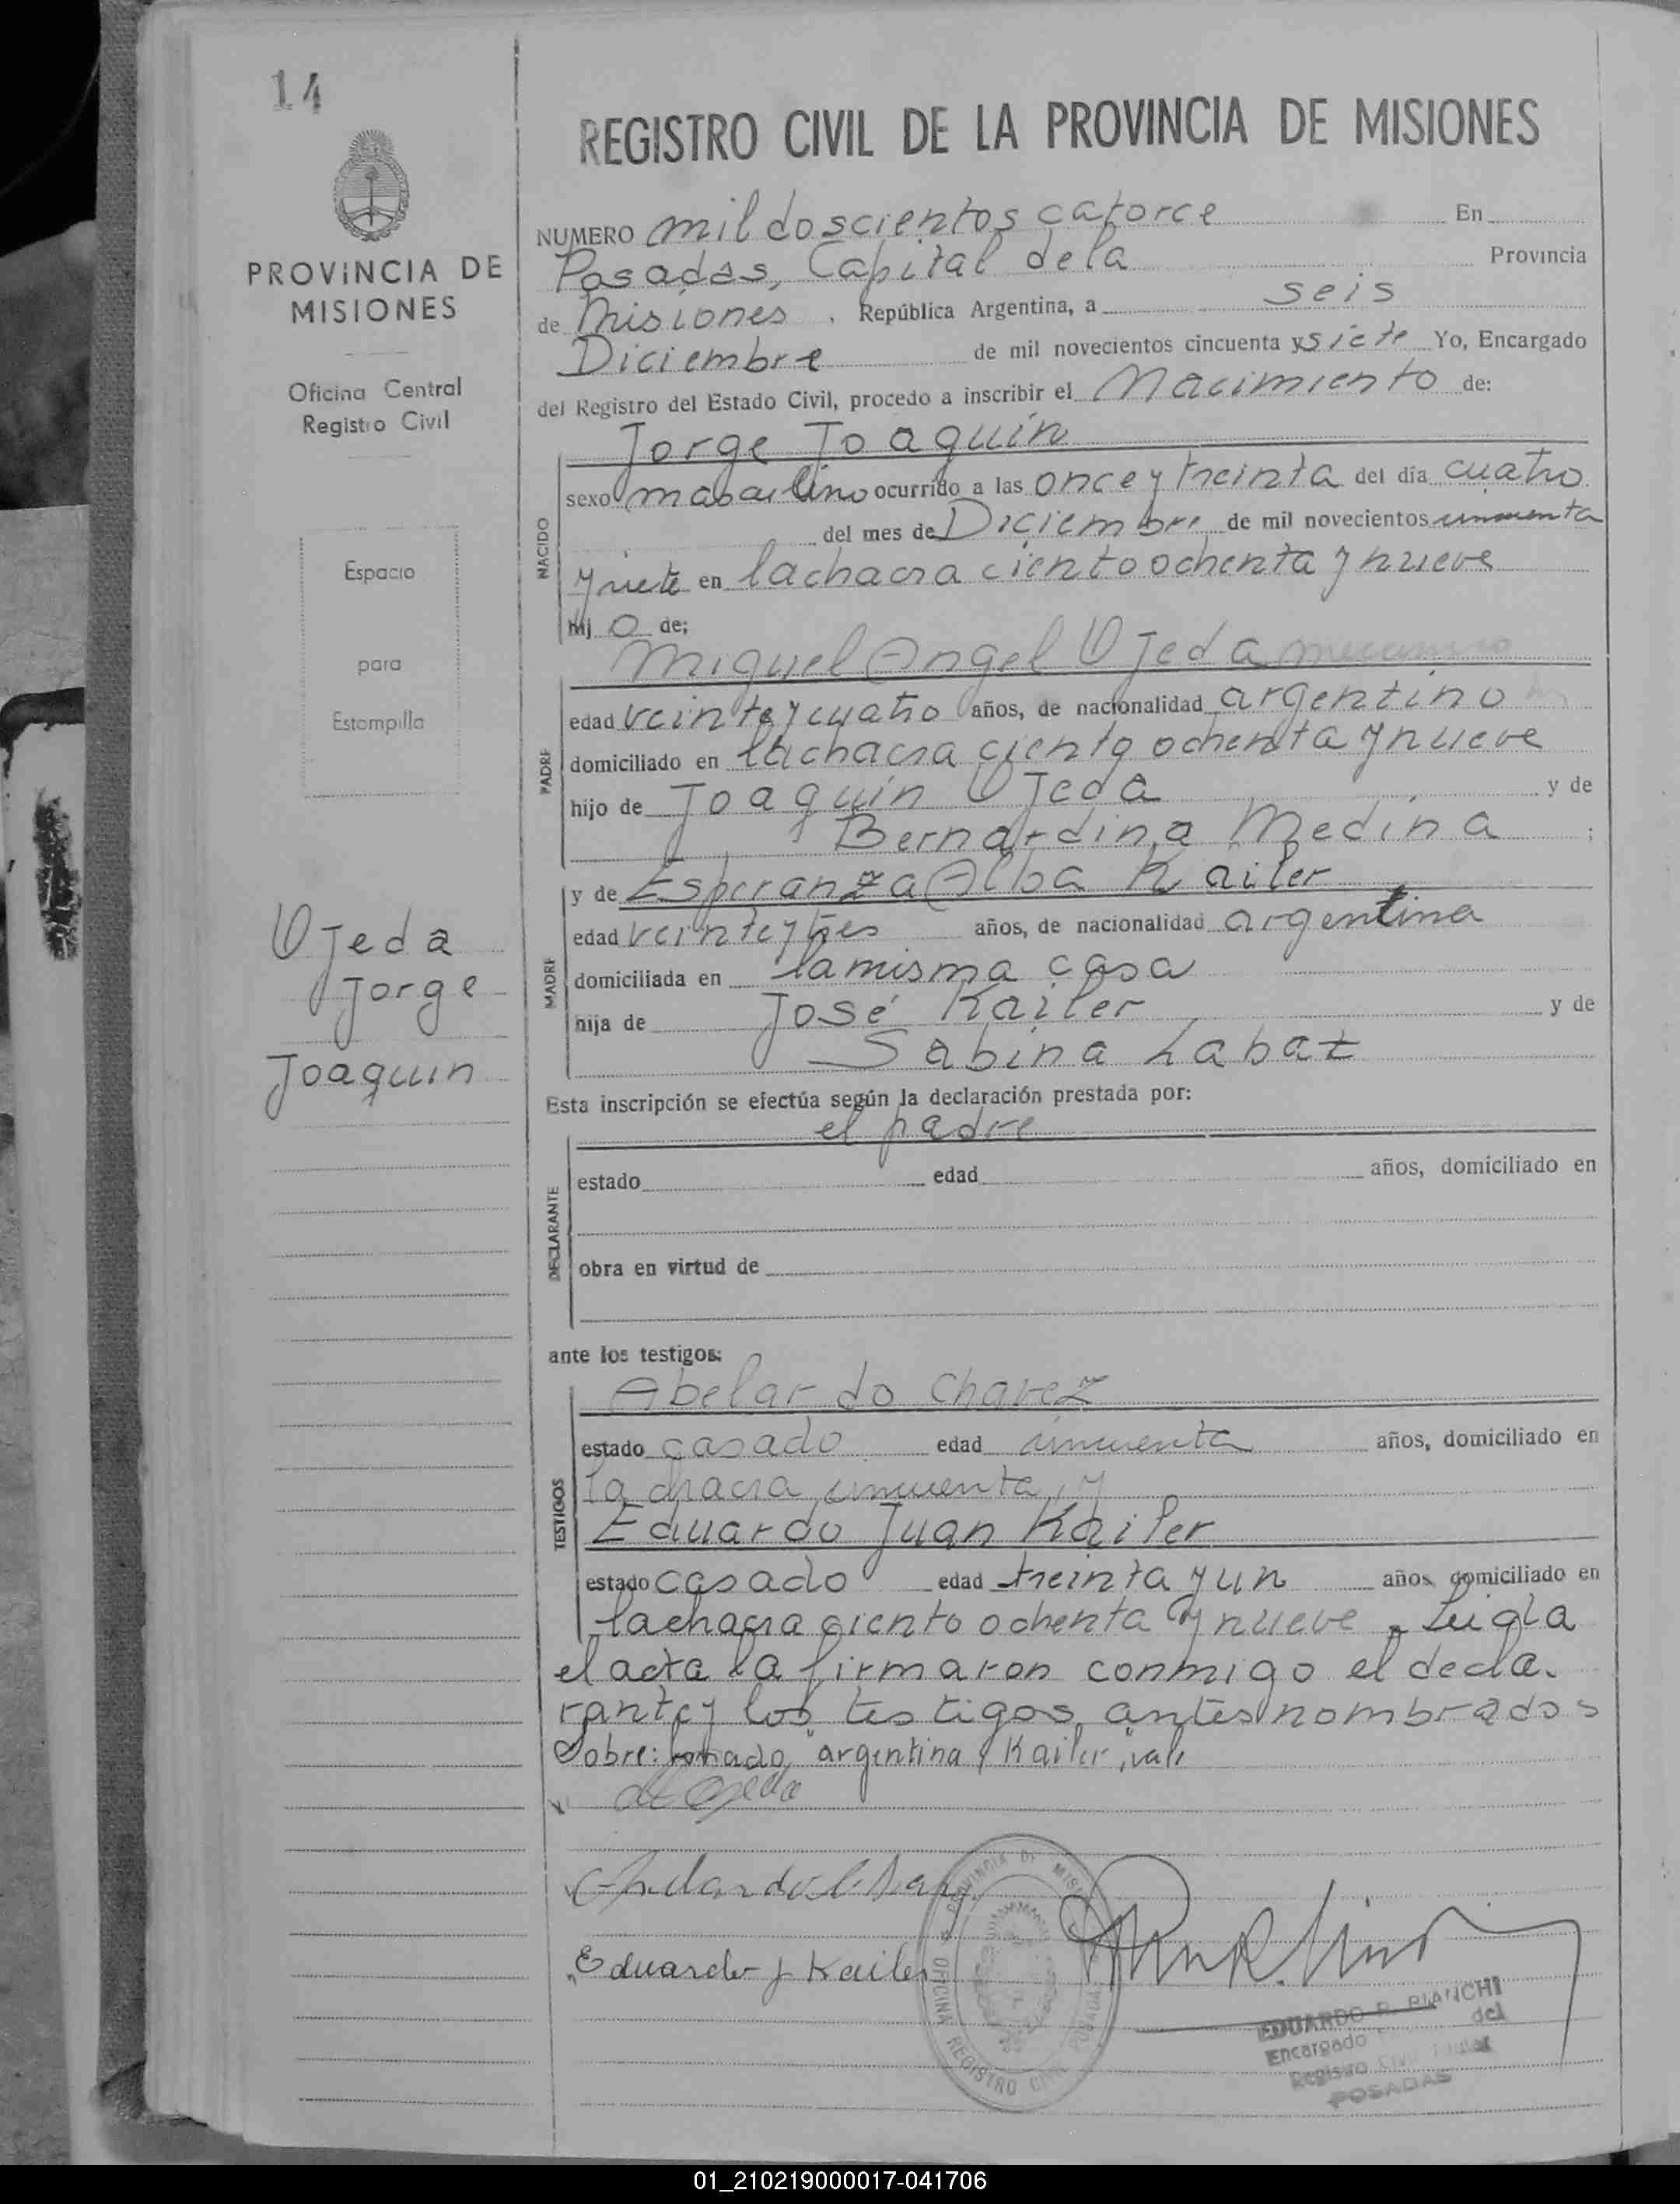 14
PROVINCIA DE
MISIONES
Oficina Central
Registro Civil
Espacio
para
Estampilla
Ojeda
Jorge
Joaquin
REGISTRO CIVIL DE LA PROVINCIA DE MISIONES
NUMERO mil doscientos catorce En
Posadas, Capital de la Provincia
de Misiones . República Argentina, a seis
Diciembre de mil novecientos cincuenta y siete Yo, Encargado
del Registro del Estado Civil, procedo a inscribir el Nacimiento de:
Jorge Joaquín
NACIDO
sexo masculino ocurrido a las once y treinta del día cuatro
del mes de Diciembre de mil novecientos cincuenta
y siete en la chacra ciento ochenta y nueve
hij o de;
Miguel Angel Ojeda
PADRE
edad veinte y cuatro años, de nacionalidad argentino
domiciliado en la chacra ciento ochenta y nueve
hijo de Joaquín Ojeda y de
Bernardina Medina ;
y de Esperanza Alba Kailer
MADRE
edad veinte y tres años, de nacionalidad argentina
domiciliada en la misma casa
hija de José Kailer y de
Sabina Labat
Esta inscripción se efectúa según la declaración prestada por:
el padre
DECLARANTE
estado edad años, domiciliado en
obra en virtud de
ante los testigos:
Abelardo Chavez
TESTIGOS
estado casado edad cincuenta años, domiciliado en
la chacra cincuenta, y
Eduardo Juan Kailer
estado casado edad treinta y un años, domiciliado en
la chacra ciento ochenta y nueve. Leida
el acta la firmaron conmigo el decla.
rante y los testigos antes nombrados
Sobre: "argentina y Kailer", vale
Ojeda
Eduardo J Kailer
PROVINCIA DE MISIONES
OFICINA REGISTRO CIVIL POSADAS
EDUARDO R. BIANCHI
Encargado del
Registro Civil
POSADAS
01_210219000017-041706